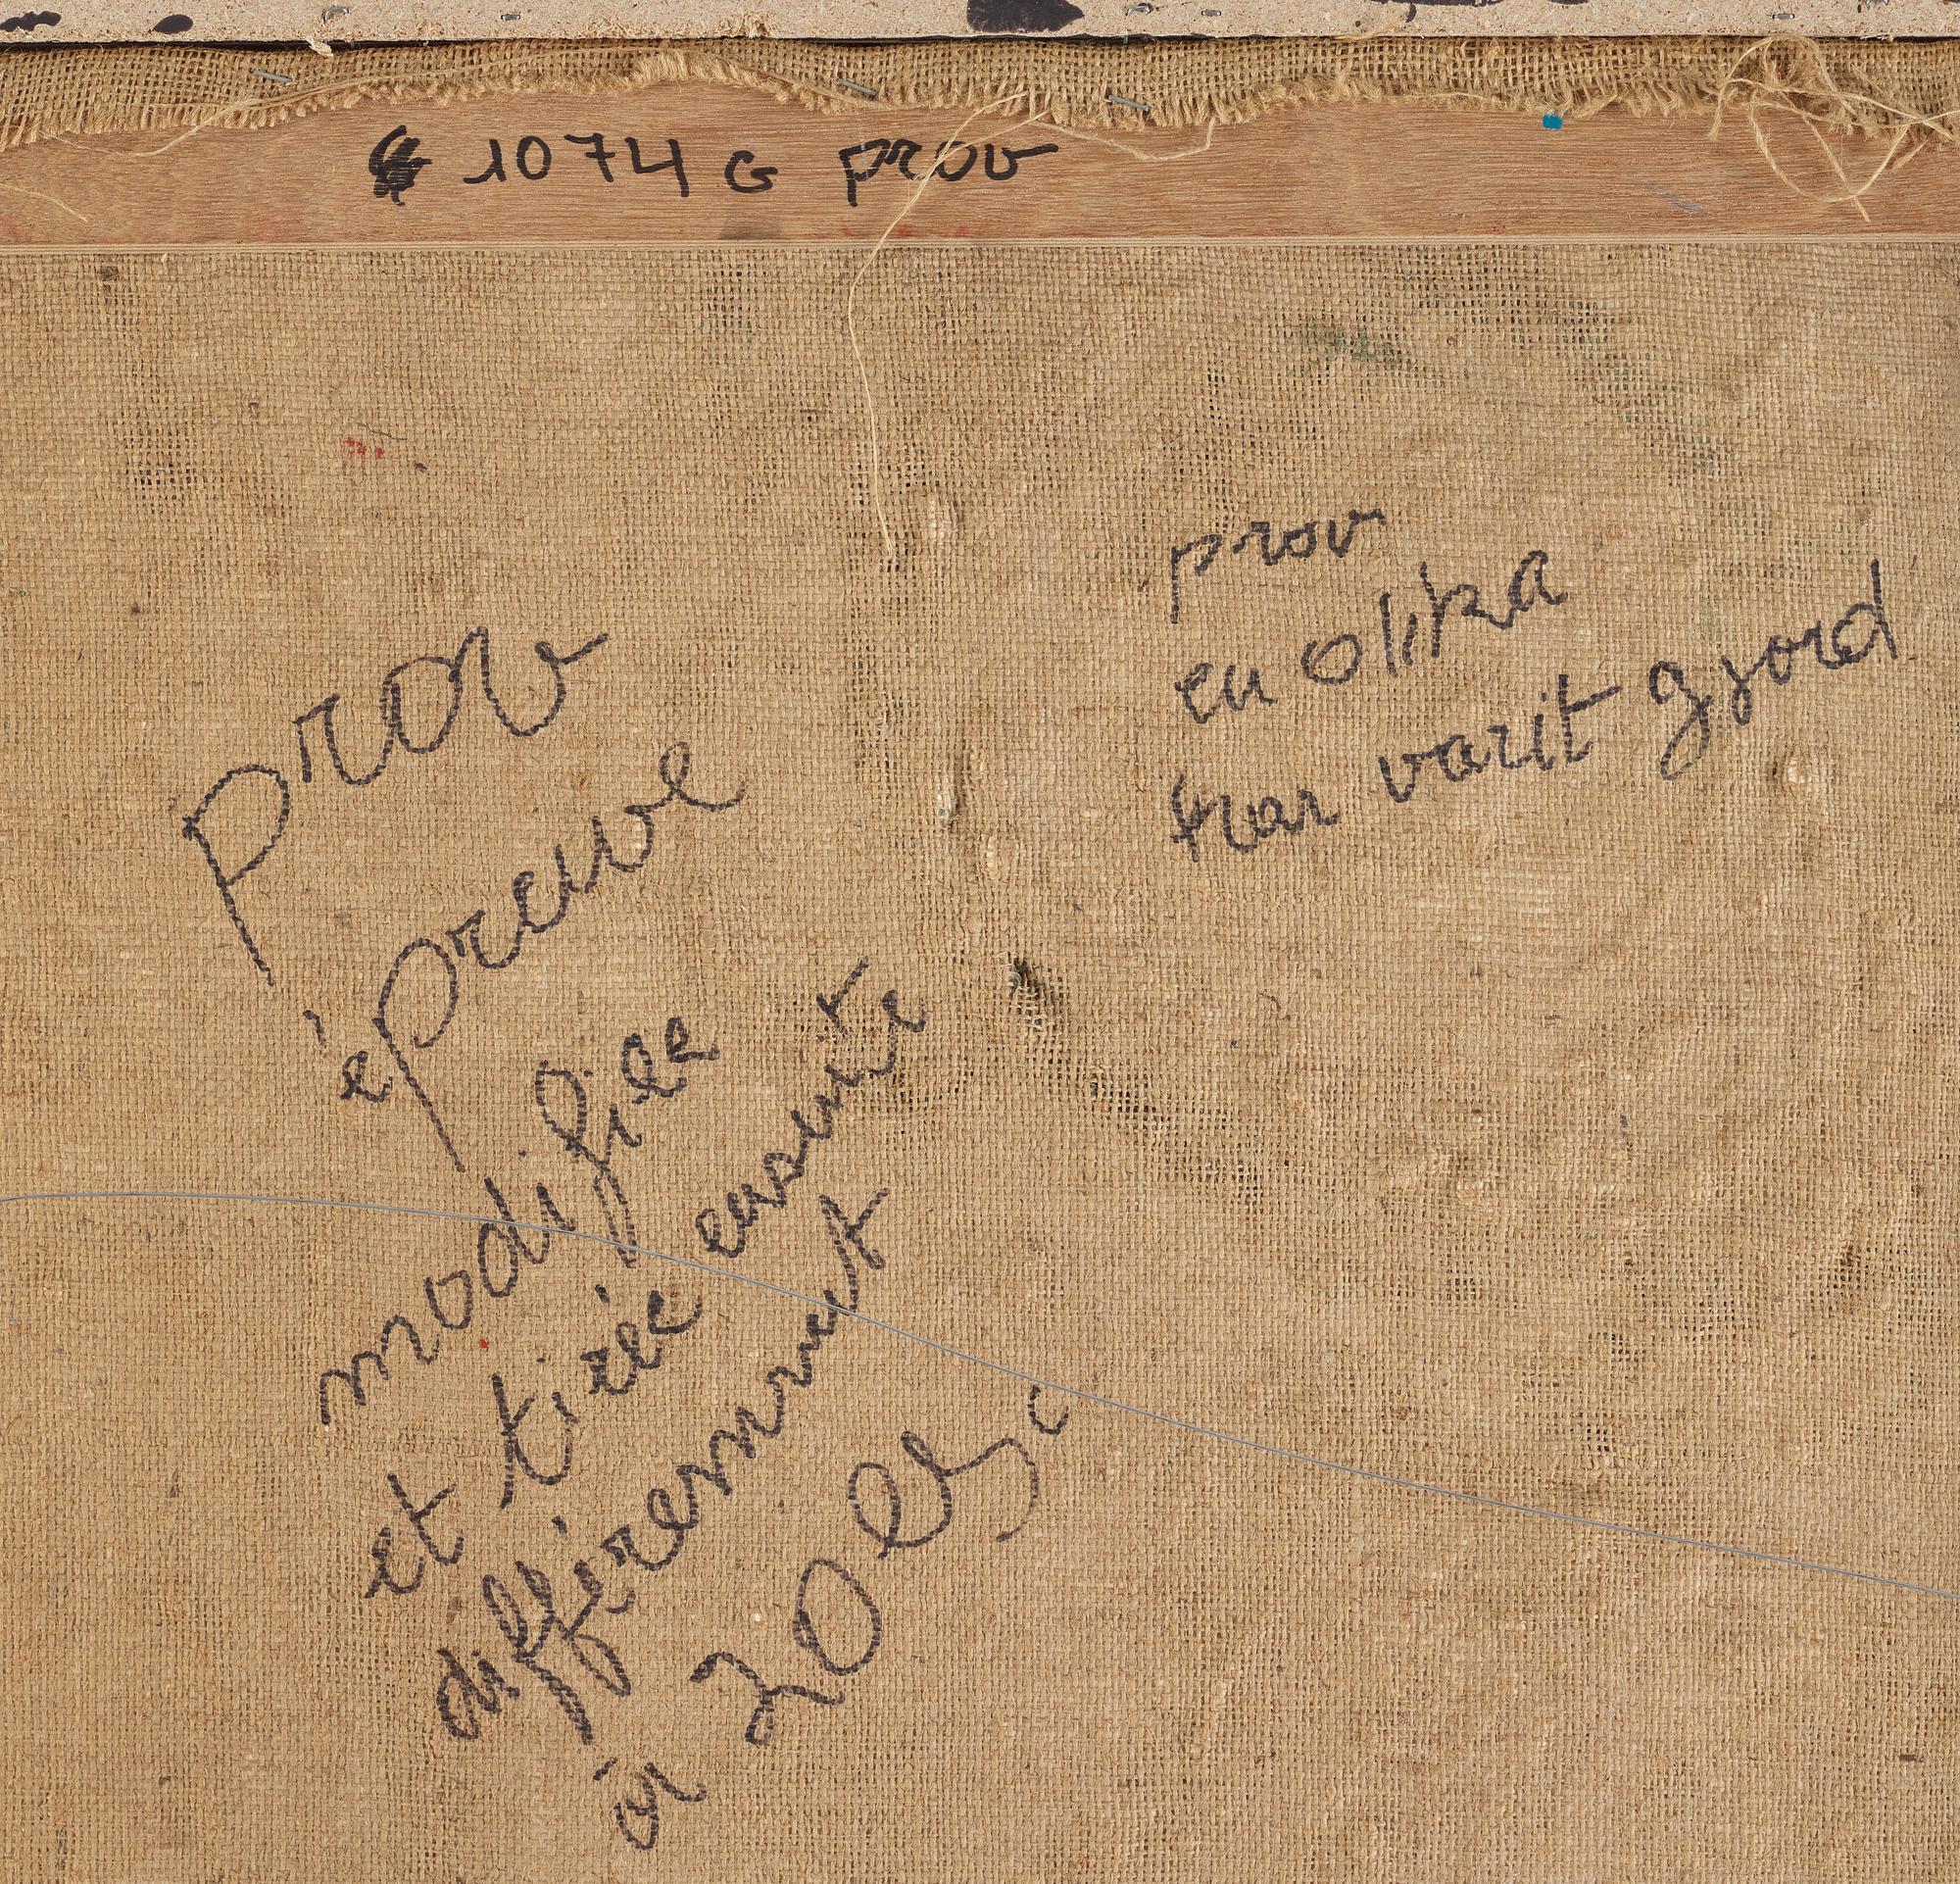 1074 G prov
prov
en olika
har varit gjord
Prov
épreuve
modifiee
et tirée ensuite
différemment
à 20 ex